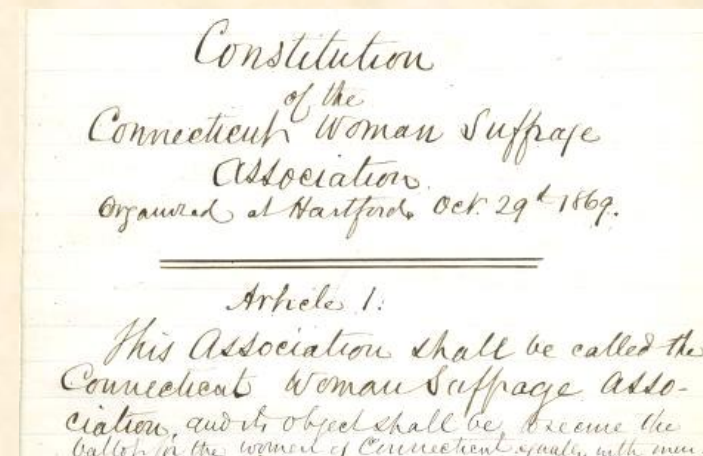 Constitution
of the
Connecticut Woman Suffrage
Association.
Organized at Hartford. Oct. 29d 1869.
Article 1.
This Association shall be called the
Connecticut Woman Suffrage Asso-
ciation, and its object shall be, to secure the
ballot for the women of Connecticut equally with men